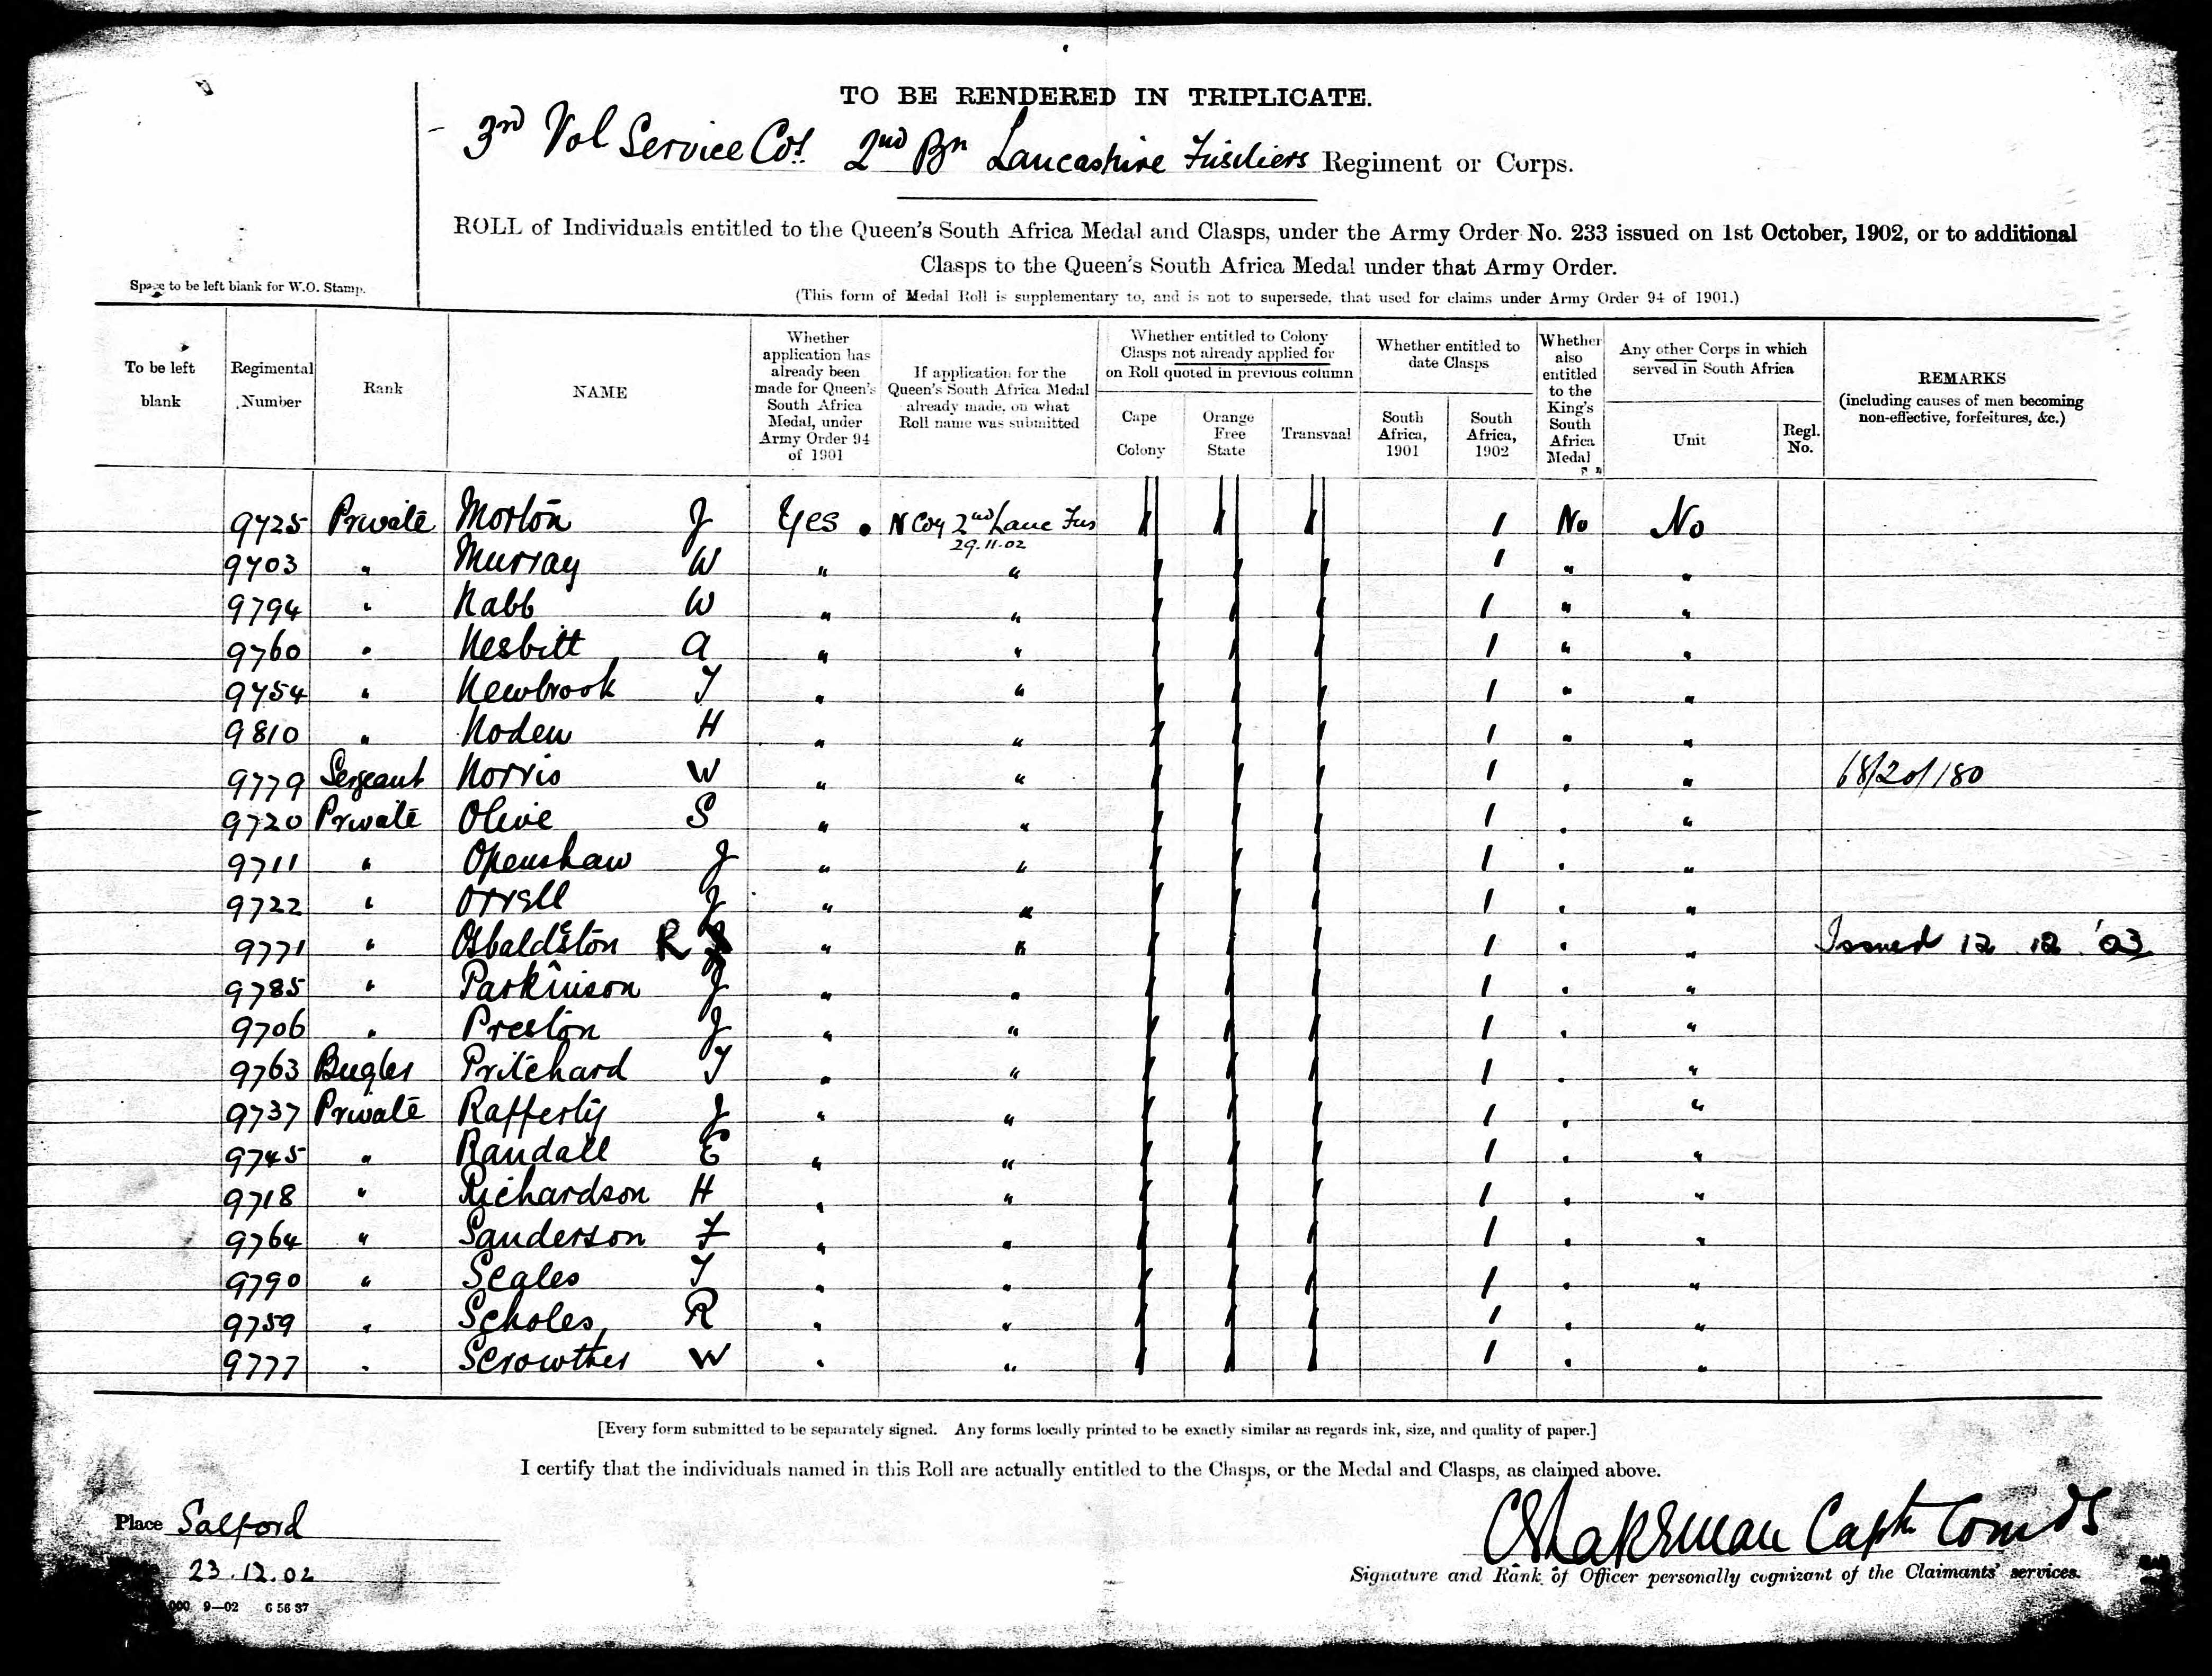 TO BE RENDERED IN TRIPLICATE.
3rd Vol Service Coy. 2nd Bn Lancashire Fusiliers Regiment or Corps.
ROLL of Individuals entitled to the Queen's South Africa Medal and Clasps, under the Army Order No. 233 issued on 1st October, 1902, or to additional
Clasps to the Queen's South Africa Medal under that Army Order.
Space to be left blank for W.O. Stamp.
(This form of Medal Roll is supplementary to, and is not to supersede, that used for claims under Army Order 94 of 1901.)
To be left blank
Regimental Number
Rank
NAME
Whether application has already been made for Queen's South Africa Medal, under Army Order 94 of 1901
If application for the Queen's South Africa Medal already made, on what Roll name was submitted
Whether entitled to Colony Clasps not already applied for on Roll quoted in previous column
Cape Colony
Orange Free State
Transvaal
Whether entitled to date Clasps
South Africa, 1901
South Africa, 1902
Whether also entitled to the King's South Africa Medal
Any other Corps in which served in South Africa
Unit
Regl. No.
REMARKS
(including causes of men becoming non-effective, forfeitures, &c.)
9725 Private Morton J Yes . N Coy 2nd Lanc Fus 29.11.02 1 No No
9703 " Murray W " " 1 " "
9794 " Nabb W " " 1 " "
9760 " Nesbitt A " " 1 " "
9754 " Newbrook T " " 1 " "
9810 " Noden H " " 1 " "
9779 Sergeant Norris W " " 1 " " 68/20/180
9720 Private Olive S " " 1 " "
9711 " Openshaw J " " 1 " "
9722 " Orrell J " " 1 " "
9771 " Osbaldeston R " " 1 " " Issued 12 . 12 . '03
9785 " Parkinson J " " 1 " "
9706 " Preston J " " 1 " "
9763 Bugler Pritchard T " " 1 " "
9737 Private Rafferty J " " 1 " "
9745 " Randall E " " 1 " "
9718 " Richardson H " " 1 " "
9764 " Sanderson F " " 1 " "
9790 " Scales T " " 1 " "
9759 " Scholes R " " 1 " "
9777 " Scrowther W " " 1 " "
[Every form submitted to be separately signed. Any forms locally printed to be exactly similar as regards ink, size, and quality of paper.]
I certify that the individuals named in this Roll are actually entitled to the Clasps, or the Medal and Clasps, as claimed above.
Place Salford
23.12.02
Capt Comdg
Signature and Rank of Officer personally cognizant of the Claimants' services.
000 9—02 6 56 37